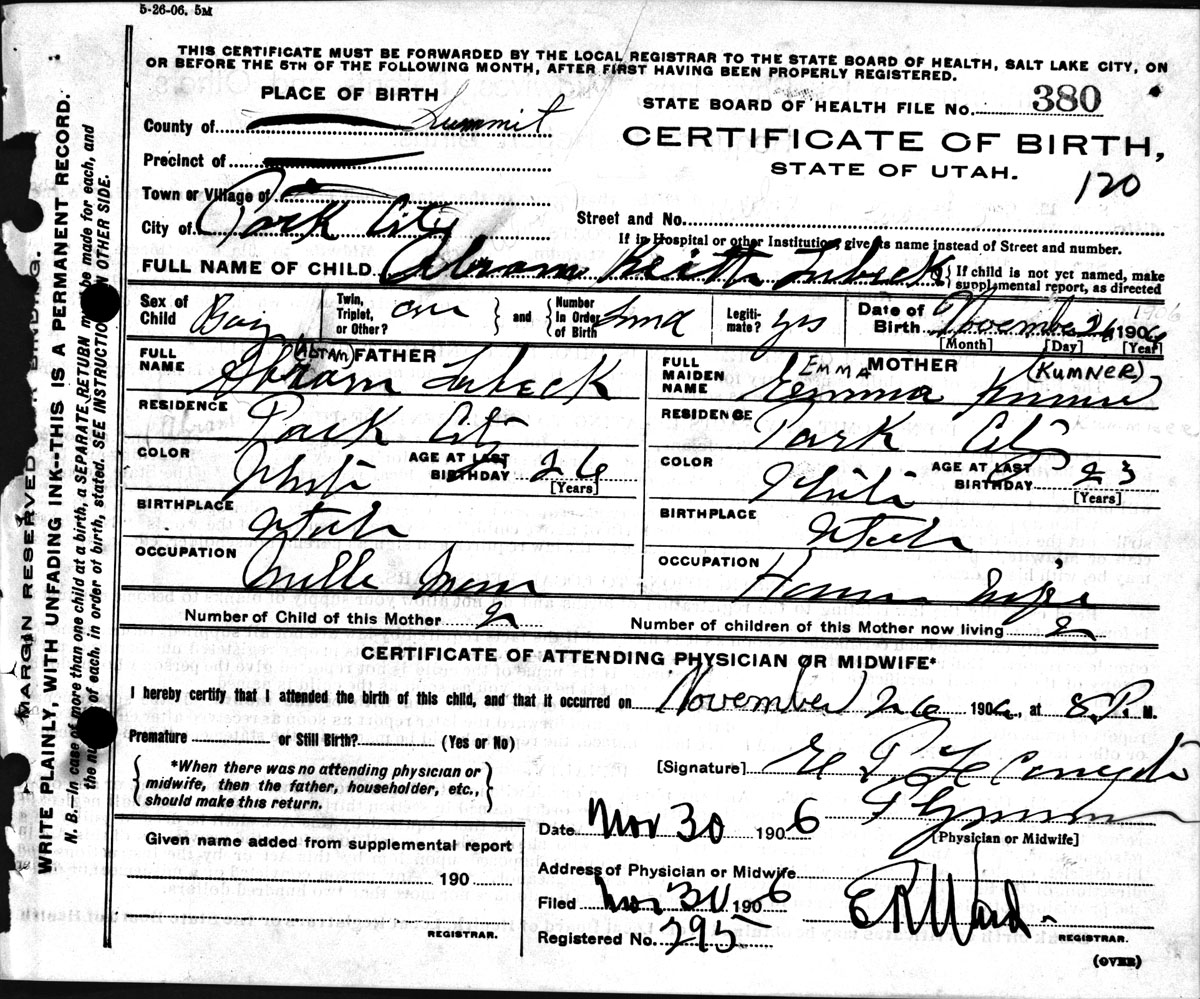 5-26-06. 5M
THIS CERTIFICATE MUST BE FORWARDED BY THE LOCAL REGISTRAR TO THE STATE BOARD OF HEALTH, SALT LAKE CITY, ON
OR BEFORE THE 5TH OF THE FOLLOWING MONTH, AFTER FIRST HAVING BEEN PROPERLY REGISTERED.
PLACE OF BIRTH
County of Summit
Precinct of
Town or Village of
City of Park City
STATE BOARD OF HEALTH FILE No. 380
CERTIFICATE OF BIRTH,
STATE OF UTAH.
120
Street and No.
If in Hospital or other Institution, give its name instead of Street and number.
FULL NAME OF CHILD Abram Keith Lubeck { If child is not yet named, make
supplemental report, as directed
Sex of Child Boy
Twin, Triplet, or Other? } and { Number In Order of Birth
Legitimate? yes
Date of Birth November 26 1906
1906
[Month] [Day] [Year]
FATHER
FULL NAME Abram Lubeck
(ABRAM)
RESIDENCE Park City
COLOR White AGE AT LAST BIRTHDAY 26
[Years]
BIRTHPLACE Utah
OCCUPATION Mill Man
MOTHER
FULL MAIDEN NAME Emma
EMMA (KUMNER)
RESIDENCE Park City
COLOR White AGE AT LAST BIRTHDAY 23
[Years]
BIRTHPLACE Utah
OCCUPATION House Wife
Number of Child of this Mother 2 Number of children of this Mother now living 2
CERTIFICATE OF ATTENDING PHYSICIAN OR MIDWIFE*
I hereby certify that I attended the birth of this child, and that it occurred on November 26 1906, at 8 P. M.
Premature or Still Birth? (Yes or No)
{ *When there was no attending physician or
midwife, then the father, householder, etc.,
should make this return. }
[Signature]
[Physician or Midwife]
Date Nov 30 1906
Address of Physician or Midwife
Filed Nov 30 1906 E R Ward
REGISTRAR.
Registered No. 295
(OVER)
Given name added from supplemental report
190
REGISTRAR.
MARGIN RESERVED FOR BINDING.
WRITE PLAINLY, WITH UNFADING INK--THIS IS A PERMANENT RECORD.
N. B.—In case of more than one child at a birth, a SEPARATE RETURN must be made for each, and
the number of each, in order of birth, stated. SEE INSTRUCTIONS ON OTHER SIDE.